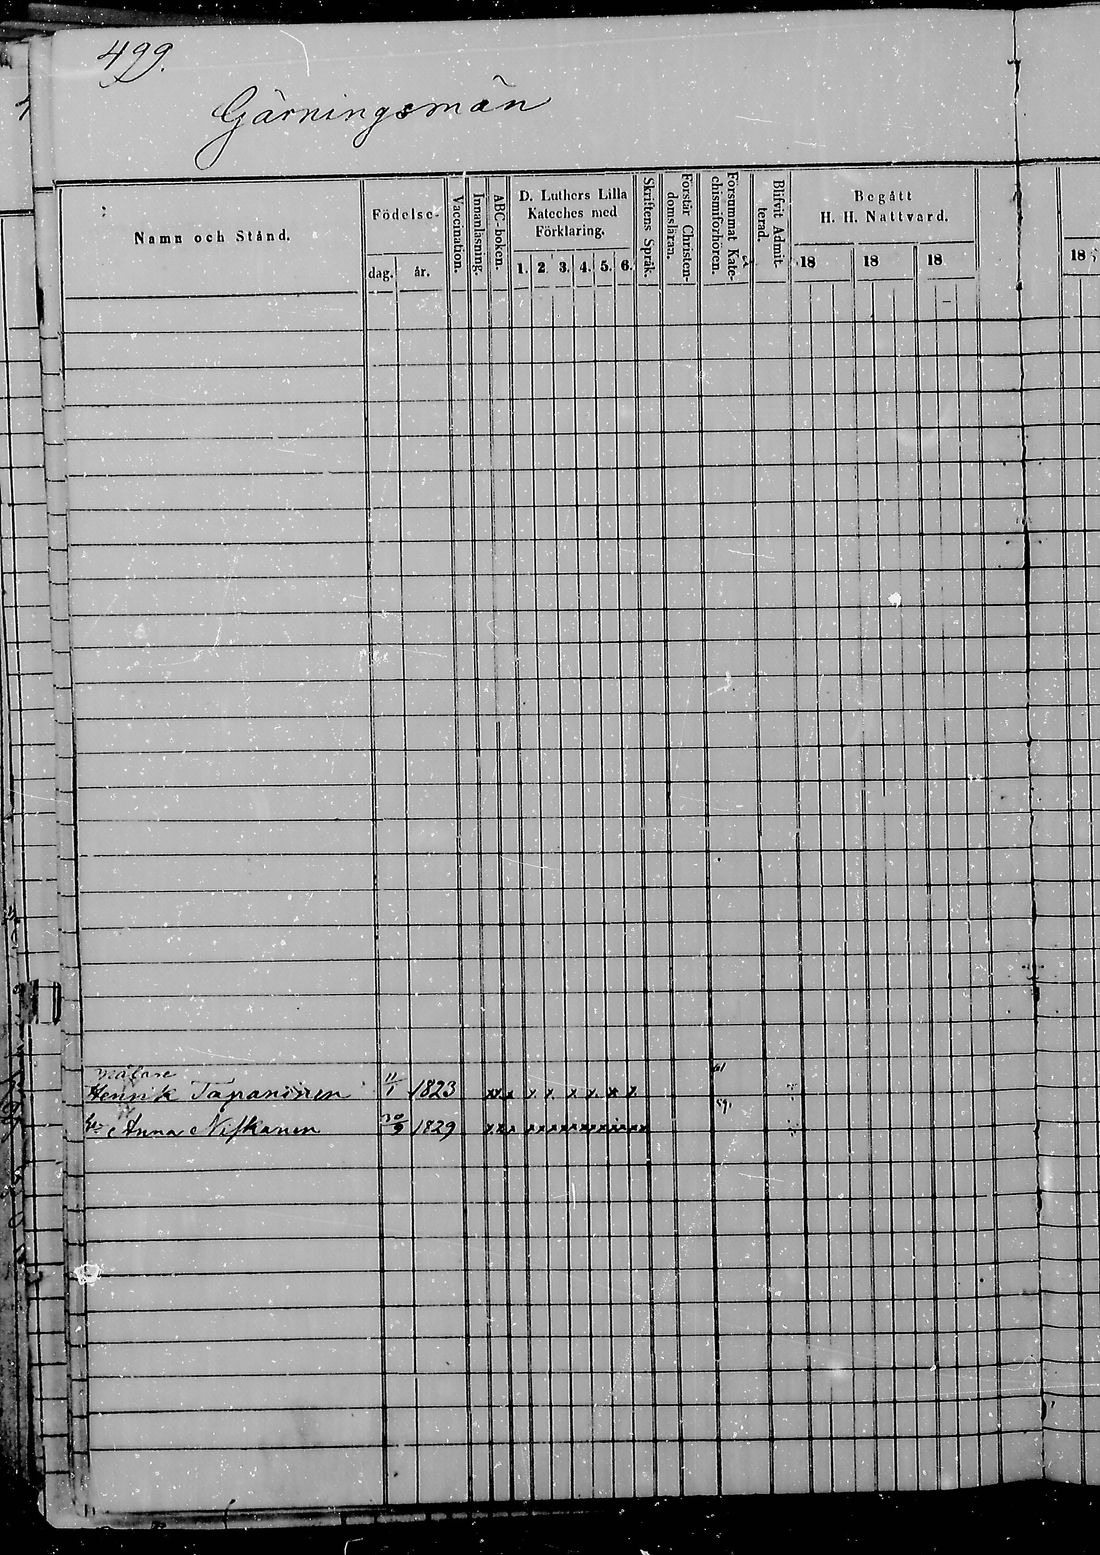 499.
Gärningsmän
Namn och Stånd.
Födelse-
dag.
år.
Vaccination.
Innanläsning.
ABC-boken.
D. Luthers Lilla
Kateches med
Förklaring.
1. 2. 3. 4. 5. 6.
Skriftens Språk.
Förstår Christen-
domsläran.
Försummat Kate-
chismiförhören.
Blifvit Admit-
terad.
Begått
H. H. Nattvard.
18 18 18
18
målare
Henrik Tapaninen 11/1 1823 61
Anna Niskanen 30/9 1829 59.